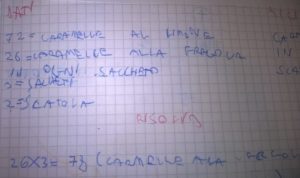 DATI
72 = CARAMELLE AL LIMONE
26 = CARAMELLE ALLA FRAGOLA IN
IN OGNI SACCHETTO
3 = SACCHETTI
2 = SCATOLA
RISOLVO
26X3= 78 (CARAMELLE ALLA